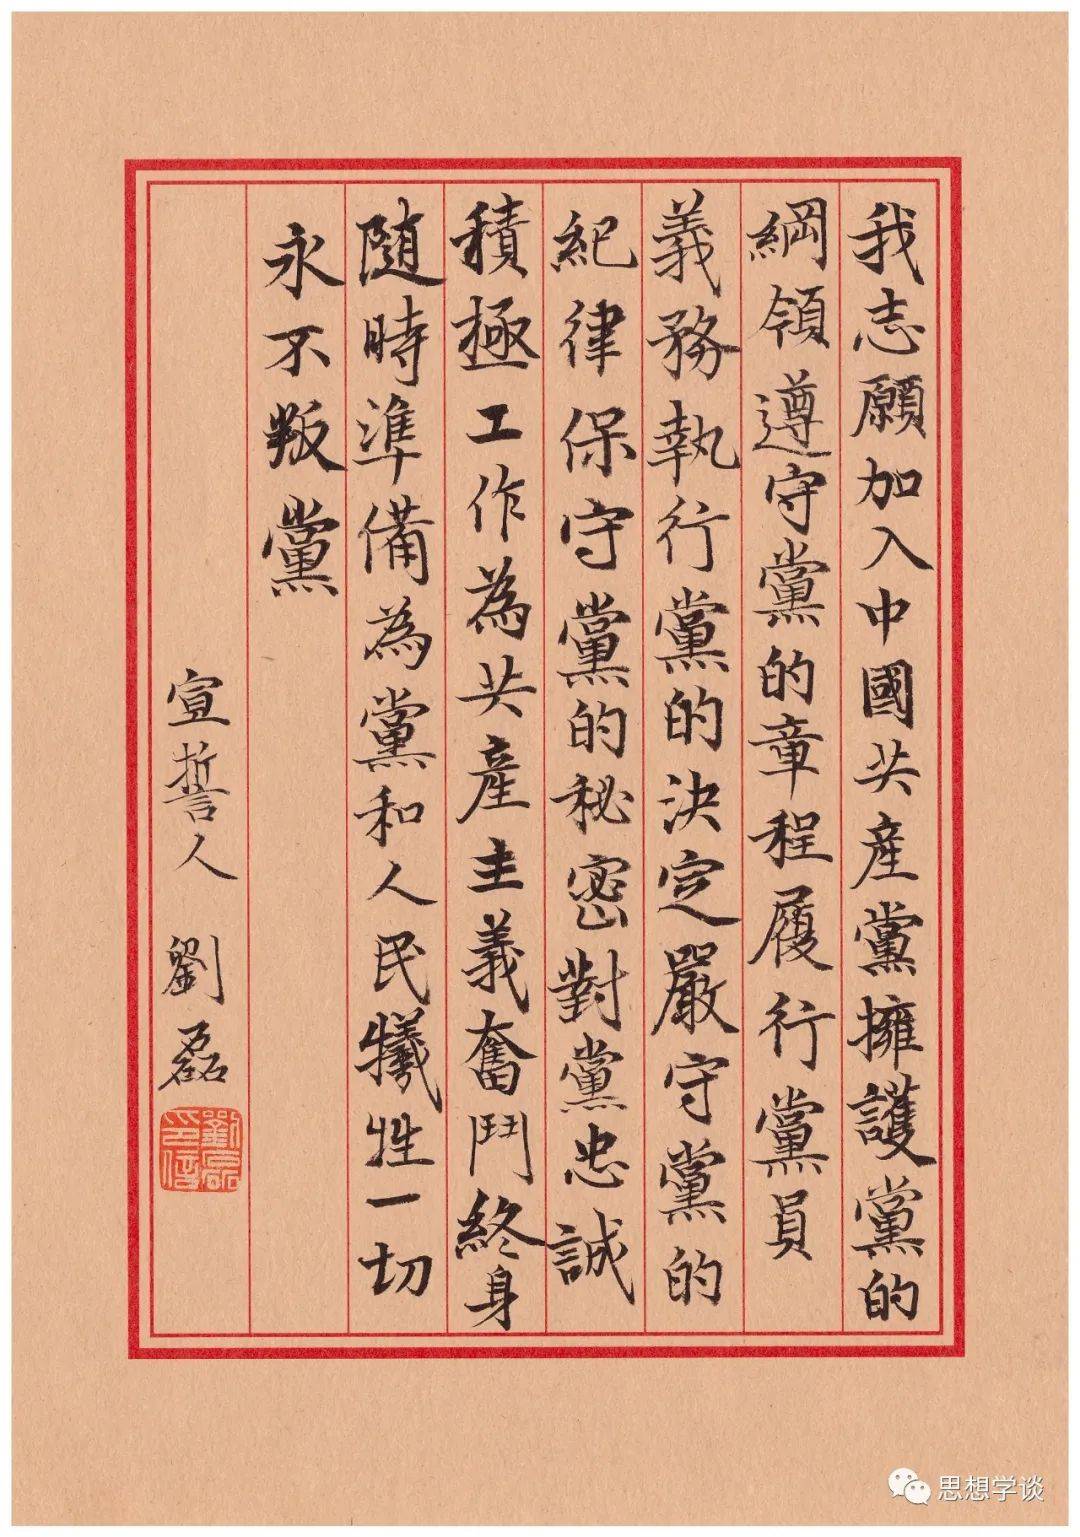 我志願加入中國共產黨擁護黨的
綱領遵守黨的章程履行黨員
義務執行黨的決定嚴守黨的
紀律保守黨的秘密對黨忠誠
積極工作為共產主義奮鬥終身
隨時準備為黨和人民犧牲一切
永不叛黨
宣誓人 劉磊
劉磊
印信
思想学谈